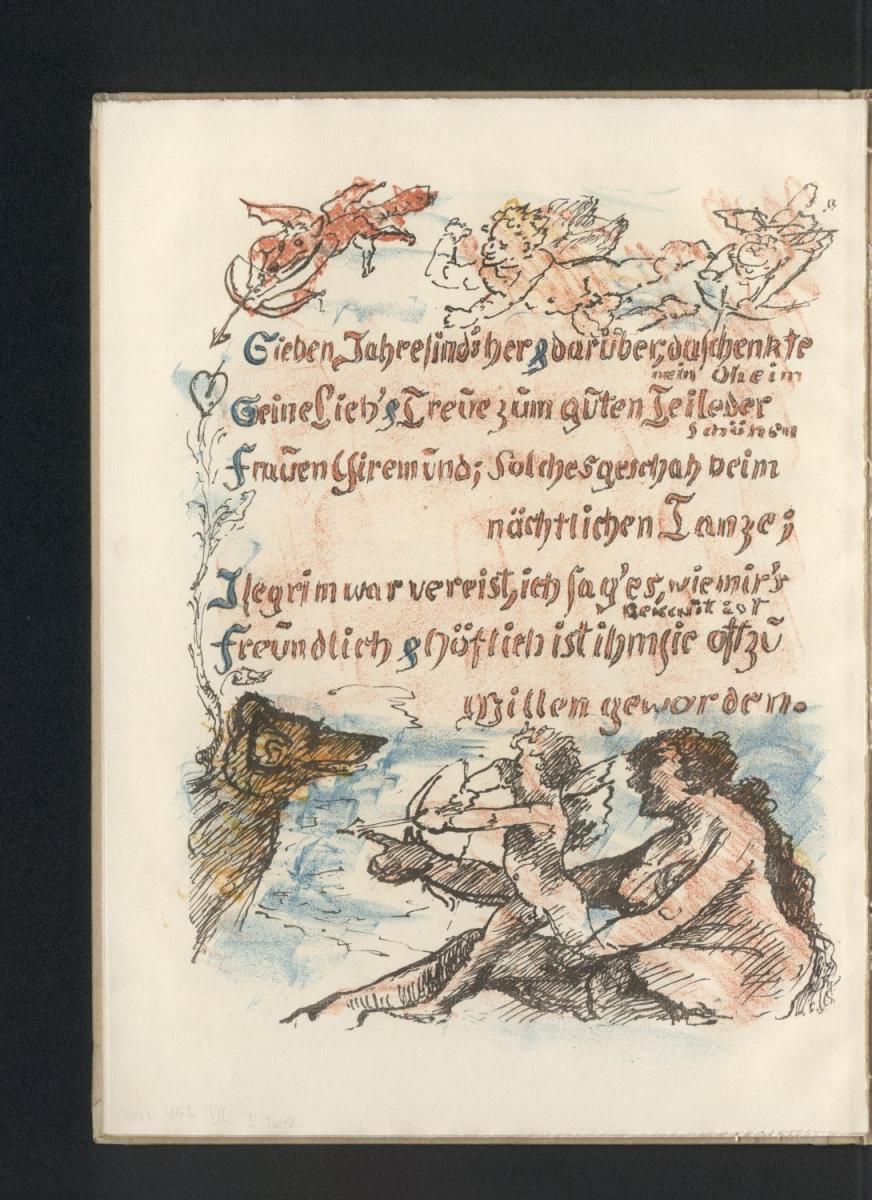 Sieben Jahre sind's her & darüber, da schenkte
mein Oheim
Seine Lieb' & Treue zum guten Teile der
schönen
Frauen Giremund; Solches geschah beim
nächtlichen Tanze;
Isegrim war vereist, ich sag' es, wie mir's
bekannt ist
Freundlich & höflich ist ihm sie oft zu
Willen geworden.